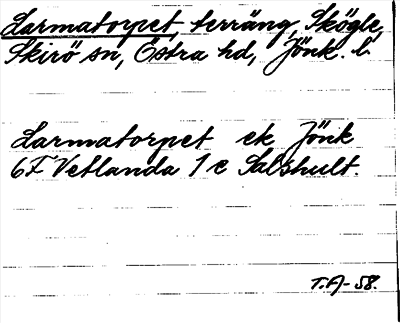 Larmatorpet, terräng, Skögle,
Skirö sn, Östra hd, Jönk. l.
Larmatorpet ek Jönk
6F Vetlanda 1 e Salshult.
T.A-58.